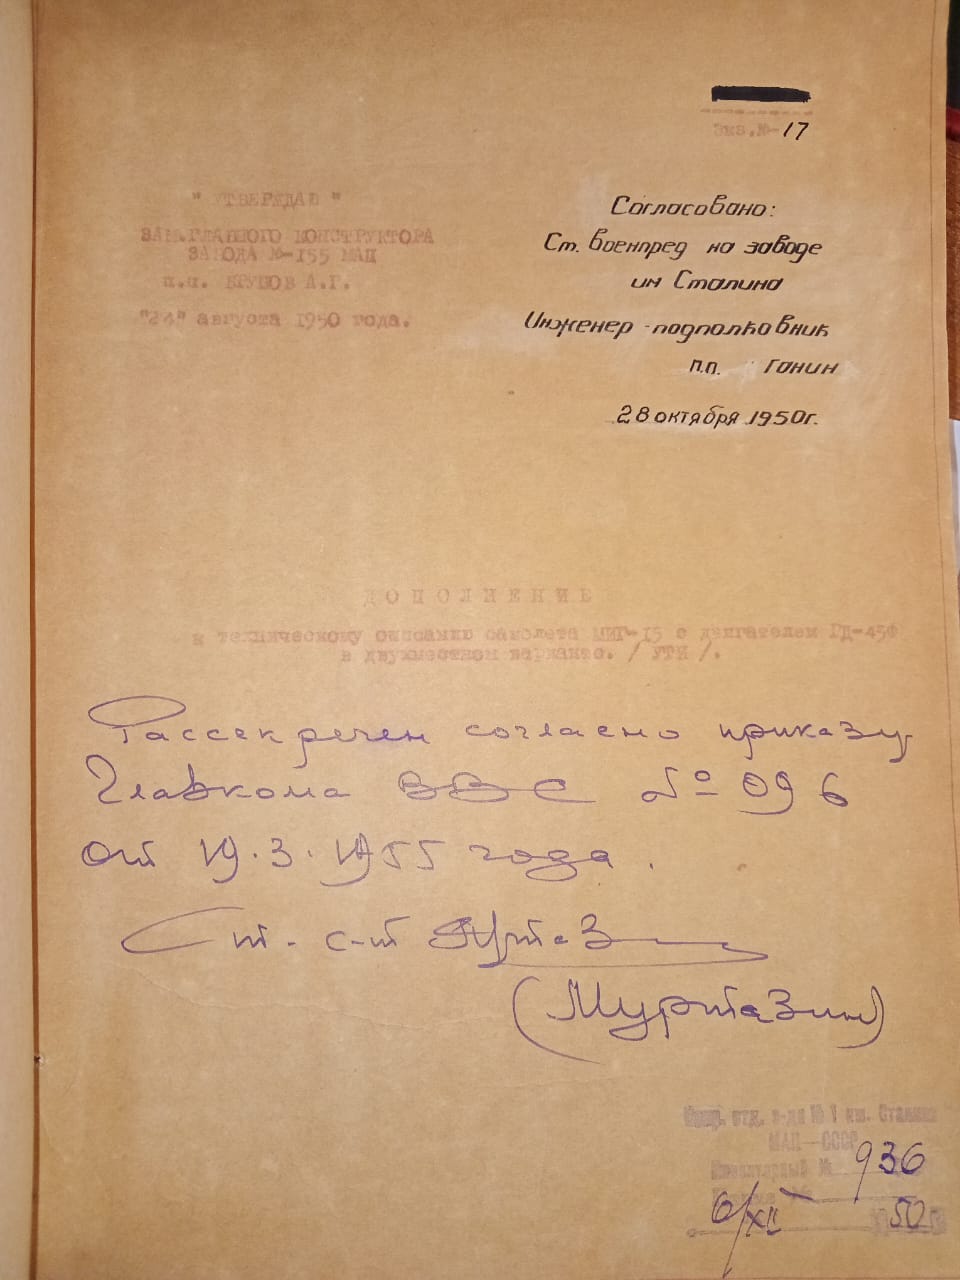 Экз.№-17
"УТВЕРЖДАЮ"
ЗАМ.ГЛАВНОГО КОНСТРУКТОРА
ЗАВОДА №-155 МАП
п.п. БРУНОВ А.Г.
"24" августа 1950 года.
Согласовано:
Ст. Военпред на заводе
им Сталина
Инженер-подполковник
п.п. Ганин
28 октября 1950г.
ДОПОЛНЕНИЕ
к техническому описанию самолета МИГ-15 с двигателем РД-45Ф
в двухместном варианте. /УТИ/.
Рассекречен согласно приказу
Главкома ВВС № 096
от 19.3.1955 года.
Ст. с-т
(Муртазин)
отд. з-да № 1 им. Сталина
МАП-СССР
№ 936
6/XII 50